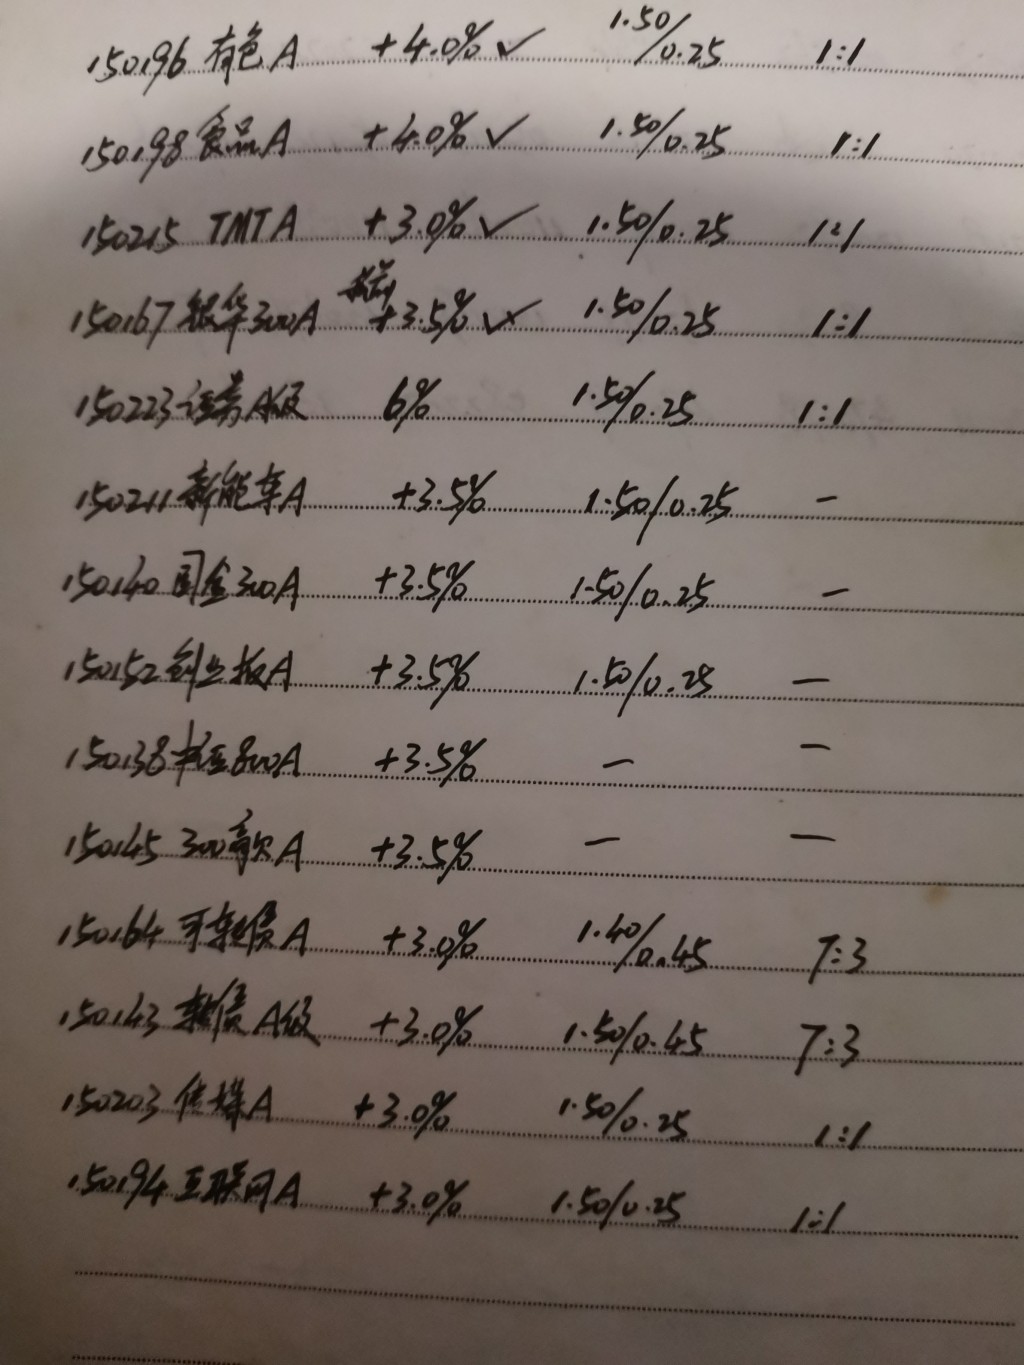 150196 有色A +4.0% ✓ 1.50/0.25 1:1
150198 食品A +4.0% ✓ 1.50/0.25 1:1
150215 TMTA +3.0% ✓ 1.50/0.25 1:1
150167 银华300A +3.5% ✓ 1.50/0.25 1:1
150223 证券A级 6% 1.50/0.25 1:1
150211 新能车A +3.5% 1.50/0.25 -
150140 国金300A +3.5% 1.50/0.25 -
150152 创业板A +3.5% 1.50/0.25 —
150138 中证800A +3.5% — —
150145 300高贝A +3.5% — —
150164 可转债A +3.0% 1.40/0.45 7:3
150143 转债A级 +3.0% 1.50/0.45 7:3
150203 传媒A +3.0% 1.50/0.25 1:1
150194 互联网A +3.0% 1.50/0.25 1:1